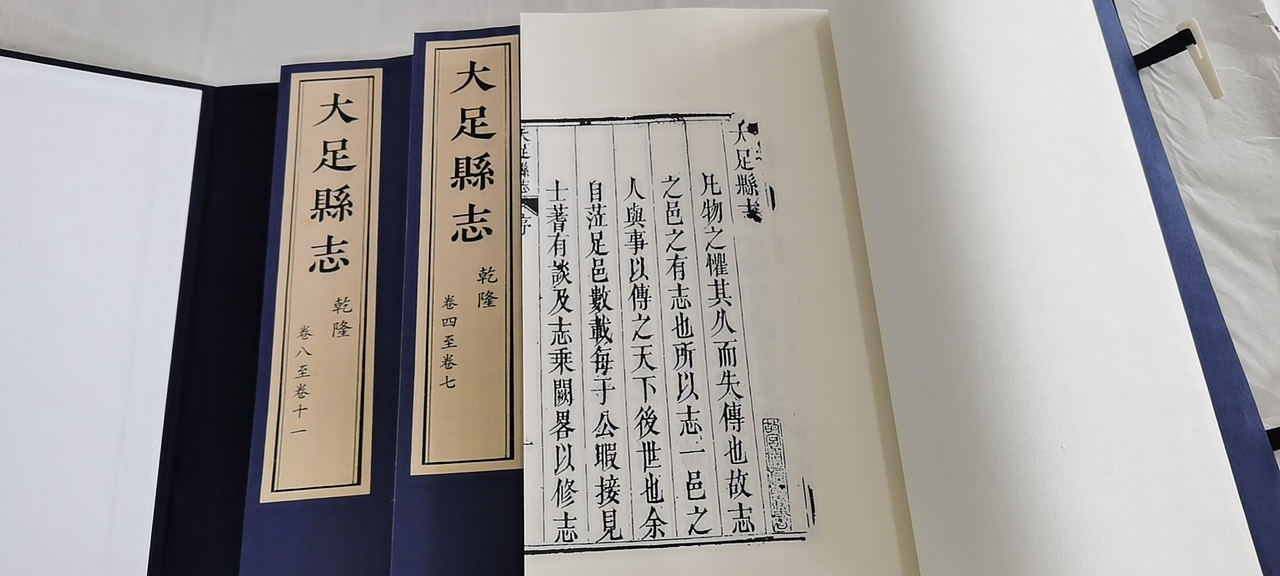 大足縣志
乾隆
卷八至卷十一
大足縣志
乾隆
卷四至卷七
大足縣志
凡物之懼其久而失傳也故志
之邑之有志也所以志一邑之
人與事以傳之天下後世也余
自蒞足邑數載每于公暇接見
士著有談及志乘闕畧以修志
大足縣志
序